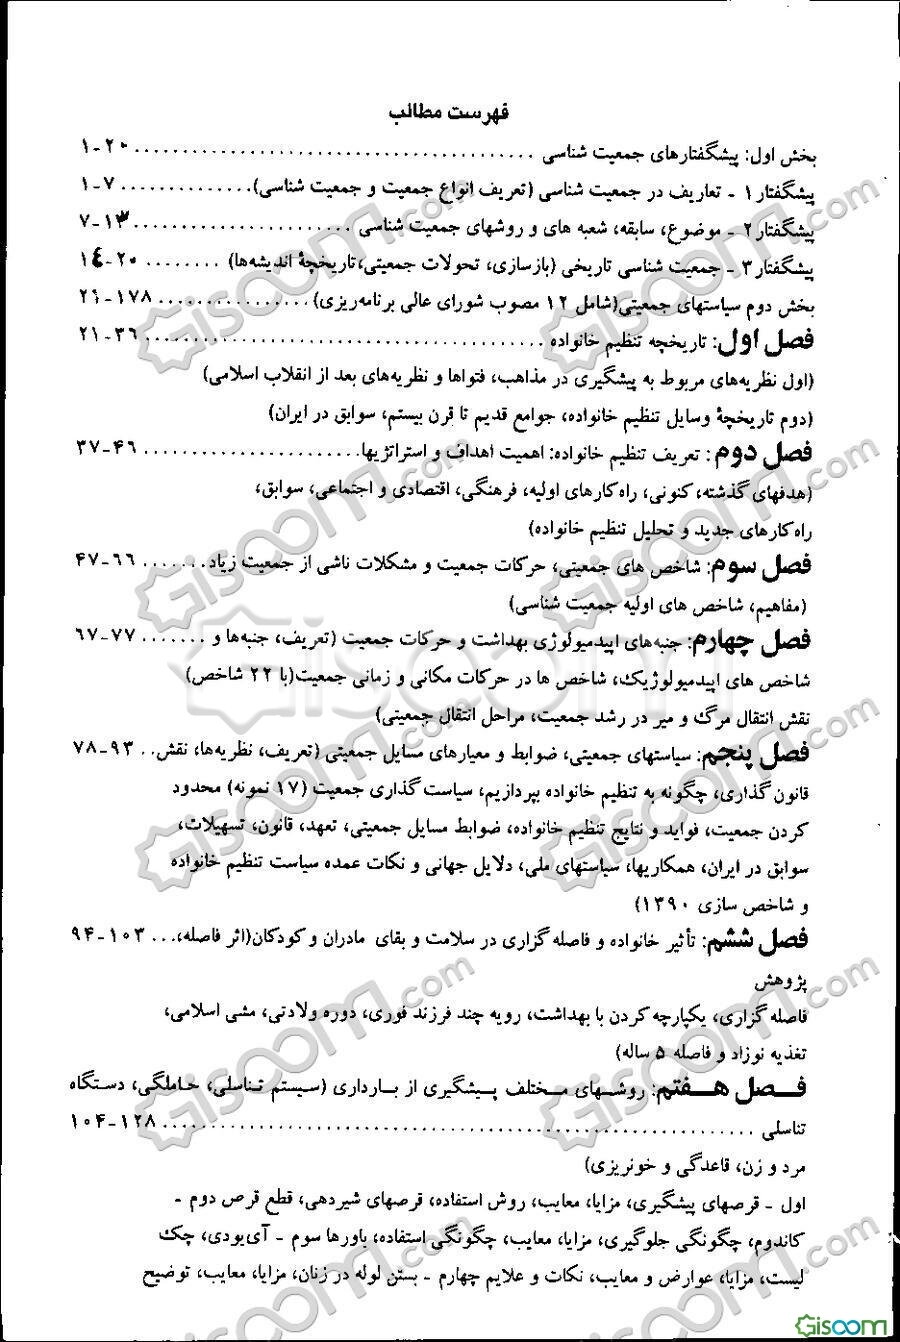 فهرست مطالب
بخش اول: پیشگفتارهای جمعیت شناسی ........................................ ۱-۲۰
پیشگفتار ۱ - تعاریف در جمعیت شناسی (تعریف انواع جمعیت و جمعیت شناسی).............. ۱-۷
پیشگفتار ۲ - موضوع، سابقه، شعبه های و روشهای جمعیت شناسی ....................... ۷-۱۳
پیشگفتار ۳ - جمعیت شناسی تاریخی (بازسازی، تحولات جمعیتی، تاریخچهٔ اندیشه‌ها) ........ ۱٤-۲۰
بخش دوم سیاستهای جمعیتی(شامل ۱۲ مصوب شورای عالی برنامه‌ریزی)................ ۲۱-۱۷۸
فصل اول: تاریخچه تنظیم خانواده ........................................ ۲۱-۳۶
(اول نظریه‌های مربوط به پیشگیری در مذاهب، فتواها و نظریه‌های بعد از انقلاب اسلامی)
(دوم تاریخچهٔ وسایل تنظیم خانواده، جوامع قدیم تا قرن بیستم، سوابق در ایران)
فصل دوم: تعریف تنظیم خانواده: اهمیت اهداف و استراتژیها....................... ۳۷-۴۶
(هدفهای گذشته، کنونی، راه‌کارهای اولیه، فرهنگی، اقتصادی و اجتماعی، سوابق،
راه‌کارهای جدید و تحلیل تنظیم خانواده)
فصل سوم: شاخص های جمعیتی، حرکات جمعیت و مشکلات ناشی از جمعیت زیاد....... ۴۷-۶۶
(مفاهیم، شاخص های اولیه جمعیت شناسی)
فصل چهارم: جنبه‌های اپیدمیولوژی بهداشت و حرکات جمعیت (تعریف، جنبه‌ها و ....... ۶۷-۷۷
شاخص های اپیدمیولوژیک، شاخص ها در حرکات مکانی و زمانی جمعیت(با ۲۲ شاخص)
نقش انتقال مرگ و میر در رشد جمعیت، مراحل انتقال جمعیتی)
فصل پنجم: سیاستهای جمعیتی، ضوابط و معیارهای مسایل جمعیتی (تعریف، نظریه‌ها، نقش... ۷۸-۹۳
قانون گذاری، چگونه به تنظیم خانواده بپردازیم، سیاست گذاری جمعیت (۱۷ نمونه) محدود
کردن جمعیت، فواید و نتایج تنظیم خانواده، ضوابط مسایل جمعیتی، تعهد، قانون، تسهیلات،
سوابق در ایران، همکاریها، سیاستهای ملی، دلایل جهانی و نکات عمده سیاست تنظیم خانواده
و شاخص سازی ۱۳۹۰)
فصل ششم: تأثیر خانواده و فاصله گزاری در سلامت و بقای مادران و کودکان(اثر فاصله،... ۹۴-۱۰۳
پژوهش
فاصله گزاری، یکپارچه کردن با بهداشت، رویه چند فرزند فوری، دوره ولادتی، مشی اسلامی،
تغذیه نوزاد و فاصله ۵ ساله)
فصل هفتم: روشهای مختلف پیشگیری از بارداری (سیستم تناسلی، حاملگی، دستگاه
تناسلی ........................................................... ۱۰۴-۱۲۸
مرد و زن، قاعدگی و خونریزی)
اول - قرصهای پیشگیری، مزایا، معایب، روش استفاده، قرصهای شیردهی، قطع قرص دوم -
کاندوم، چگونگی جلوگیری، مزایا، معایب، چگونگی استفاده، باورها سوم - آی‌یودی، چک
لیست، مزایا، عوارض و معایب، نکات و علایم چهارم - بستن لوله در زنان، مزایا، معایب، توضیح
Giscom.com
Gisoom